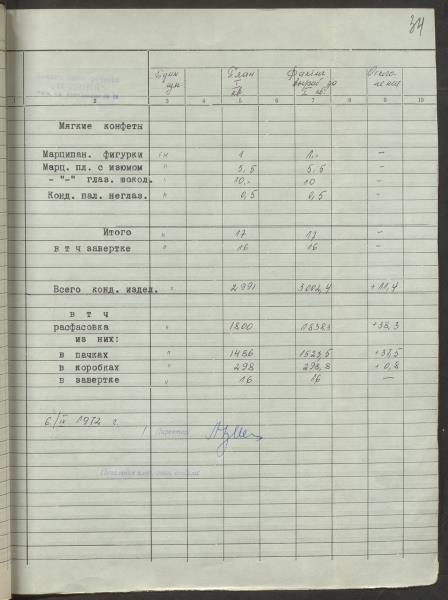 34
Един. План Фактич. Откло-
изм. I кв выраб за I кв. нения
2 3 4 5 6 7 8 9 10
Мягкие конфеты
Марципан. фигурки тн 1 1,- -
Марц. пл. с изюмом " 5,5 5,5 -
- "-" глаз. шокол. " 10,- 10 -
Конд. пал. неглаз. " 0,5 0,5 -
Итого " 17 17 -
в т ч завертке " 16 16 -
Всего конд. издел. " 2991 3002,4 +11,4
в т ч
расфасовка " 1800 1838,3 +38,3
из них:
в пачках " 1486 1523,5 +37,5
в коробках " 298 298,8 +0,8
в завертке " 16 16 -
6/IV 1972 г.
Директор